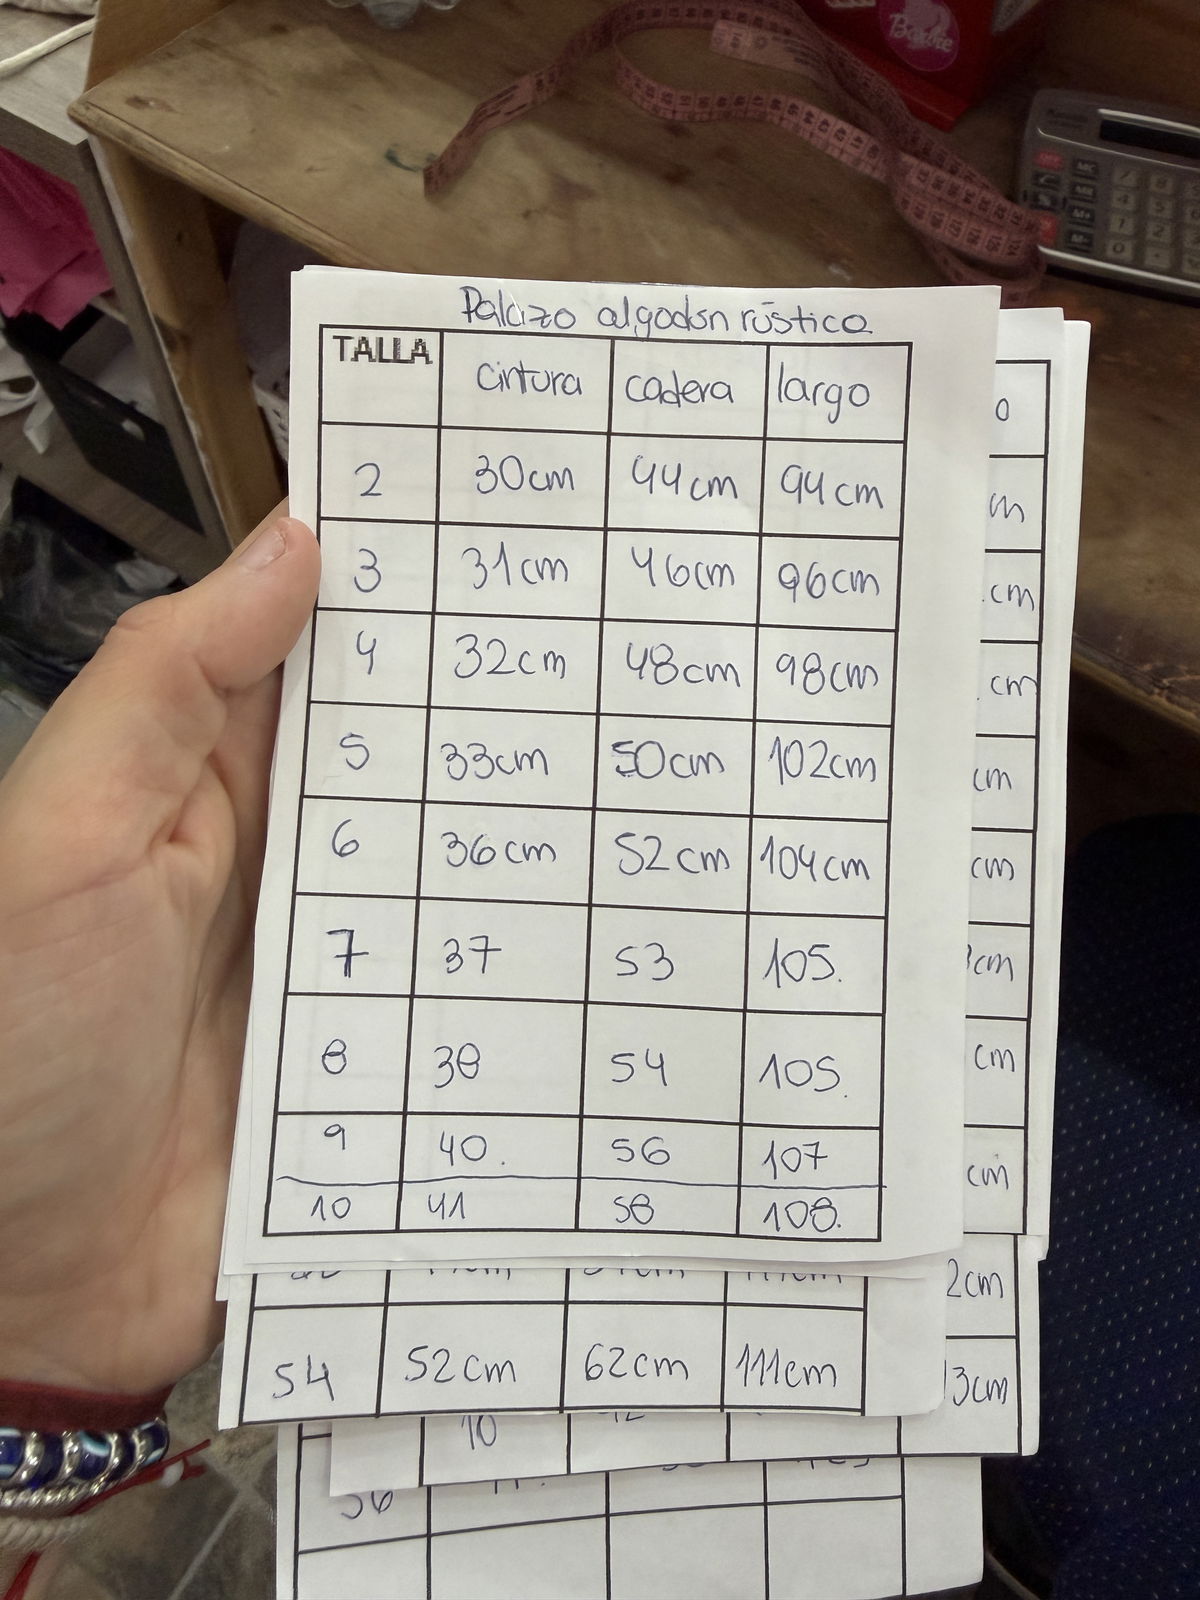 Barbie
Palazo algodon rústico
TALLA cintura cadera largo
2 30cm 44cm 94cm
3 31cm 46cm 96cm
4 32cm 48cm 98cm
5 33cm 50cm 102cm
6 36cm 52cm 104cm
7 37 53 105.
8 38 54 105.
9 40. 56 107
10 41 58 108.
54 52cm 62cm 111cm
10
56
o
m
cm
cm
cm
cm
cm
cm
cm
2cm
3cm